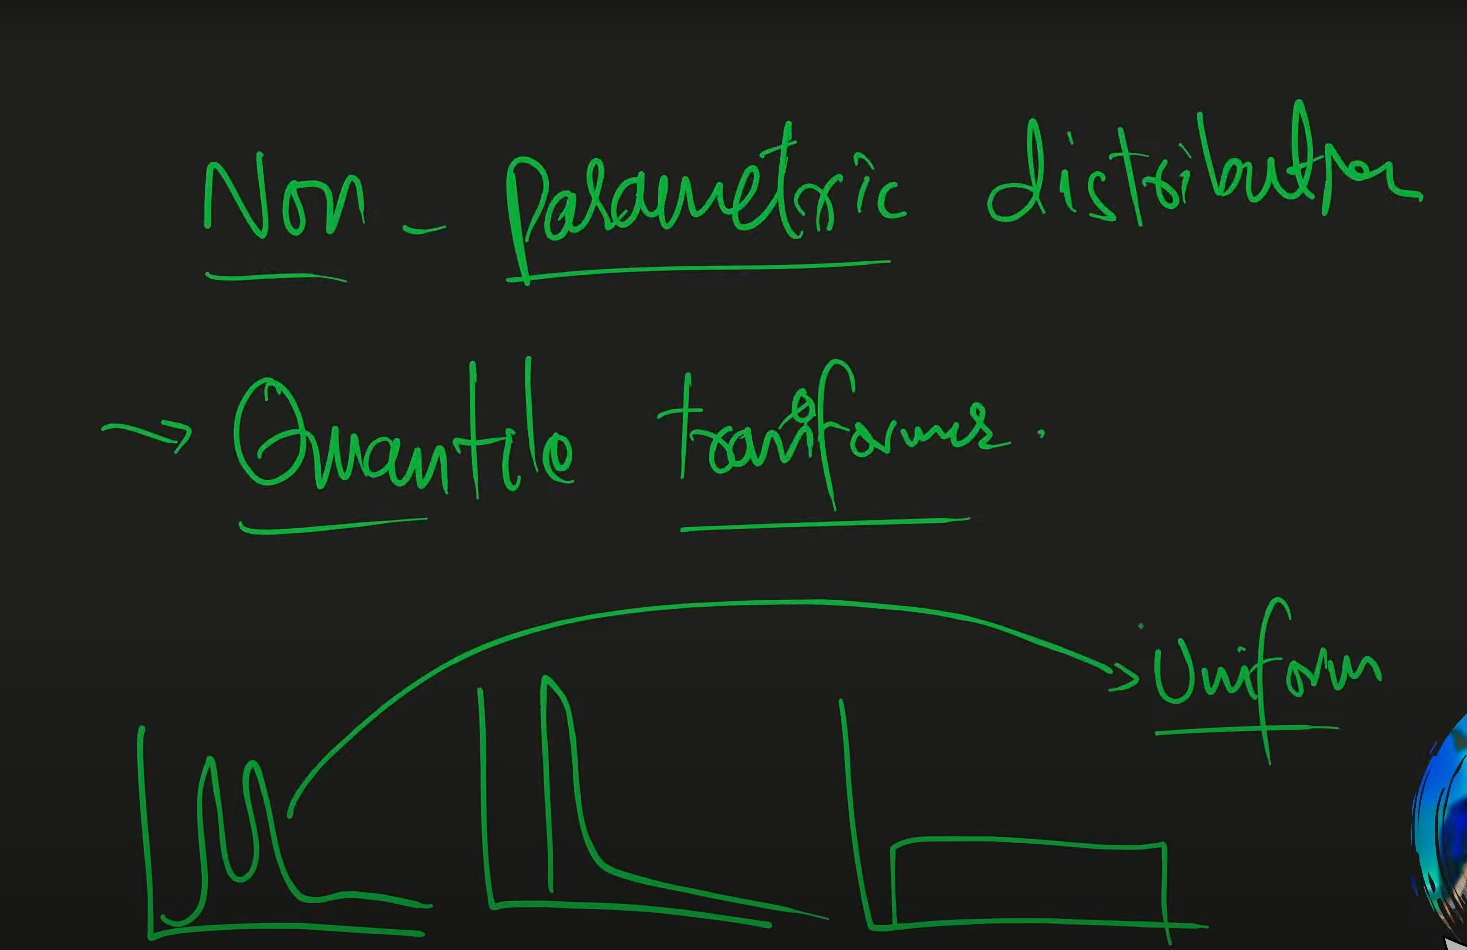 Non - Parametric distribution
→ Quantile transformer.
Uniform